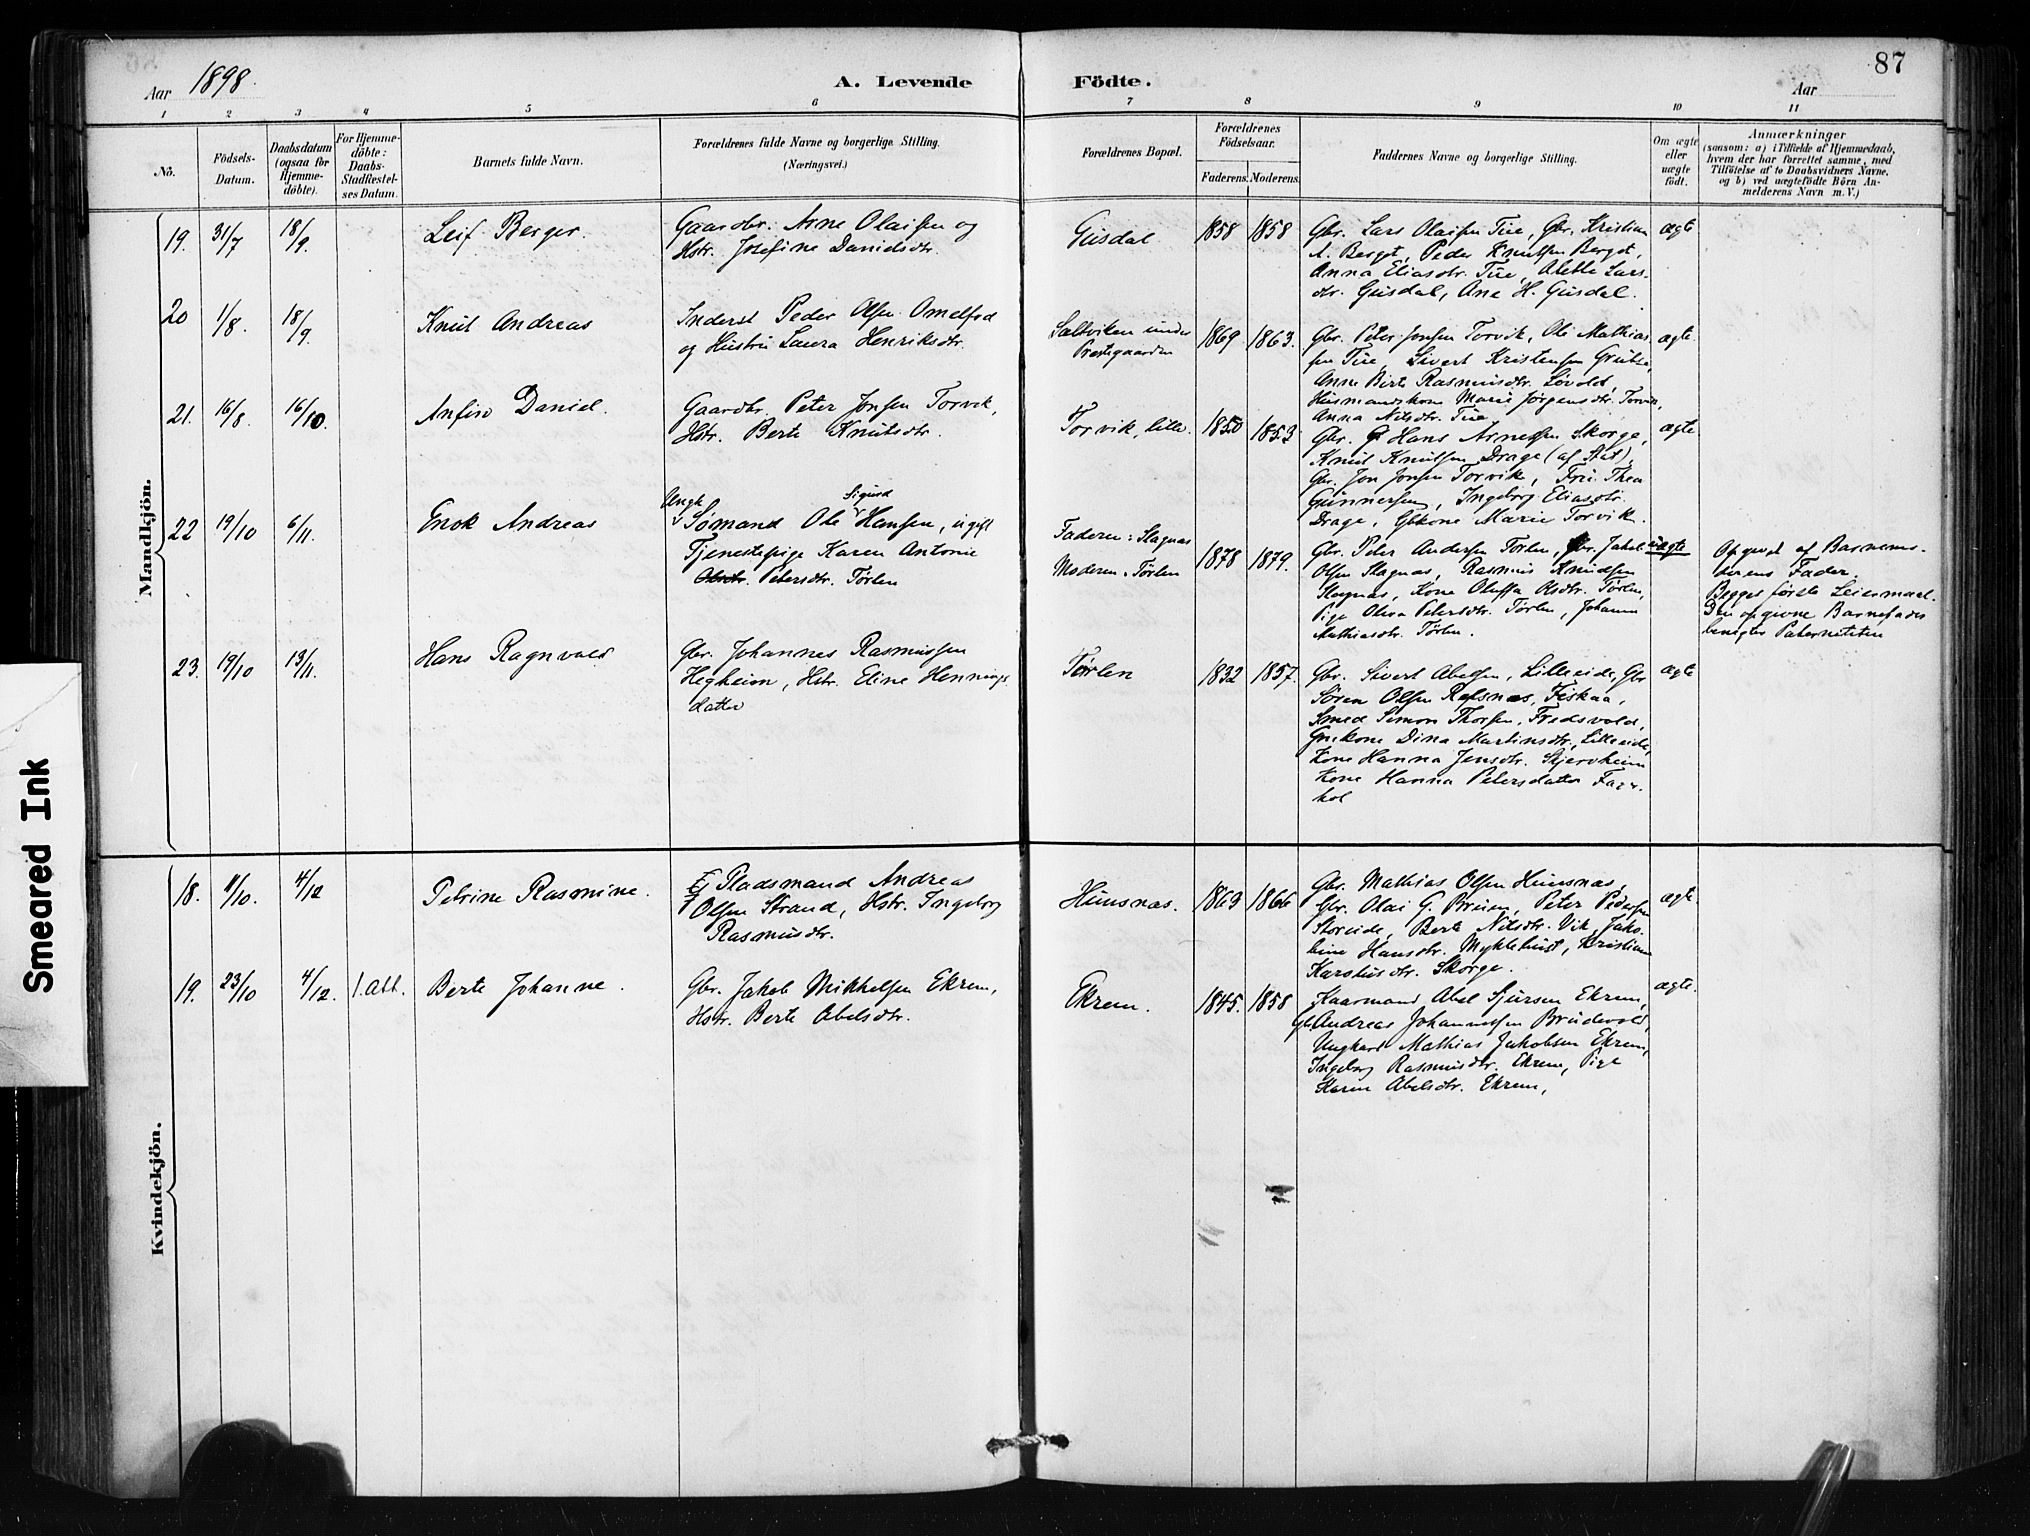 87
Aar 1898.
A. Levende
Födte.
Aar
1 2 3 4 5 6 7 8 9 10 11
No.
Födsels-
Datum.
Daabsdatum
(ogsaa for
Hjemme-
döbte).
For Hjemme-
döbte:
Daabs-
Stadfæstel-
ses Datum.
Barnets fulde Navn.
Forældrenes fulde Navne og borgerlige Stilling.
(Næringsvei.)
Forældrenes Bopæl.
Forældrenes
Födselsaar.
Faderens. Moderens.
Faddernes Navne og borgerlige Stilling.
Om ægte
eller
uægte
födt.
Anmærkninger
(saasom: a) i Tilfælde af Hjemmedaab,
hvem der har forrettet samme, med
Tilföielse af to Daabsvidners Navne,
og b) ved uægtefödte Börn An-
melderens Navn m. V.)
Mandkjön.
19. 31/7 18/9. Leif Berger.
Gaardbr. Arne Olaisen og
Hstr. Josefine Danielsdtr.
Gusdal 1858 1858
Gbr. Lars Olaisen Tue, Gbr. Kristian
A. Berget, Peder Knutsen Berget,
Anna Eliasdtr. Tue, Alette Lars-
dtr. Gusdal, Ane H. Gusdal.
ægte
20 1/8. 18/9 Knut Andreas
Inderst Peder Olsen Omelfod
og Hustru Laura Henriksdtr.
Saltviken under
Prestegaarden
1869 1863.
Gbr. Peter Jonsen Torvik, Ole Mathias-
sen Tue, Sivert Kristensen
Anne Berte Rasmusdtr. Løvold,
Husmandskone Marie Jørgensdtr. Torvik,
Anna Nilsdtr. Tue
ægte.
21. 16/8. 16/10. Anfin Daniel.
Gaardbr. Peter Jonsen Torvik,
Hstr. Berte Knutsdtr.
Torvik, lille. 1850 1853
Gbr. Hans Arnessen Skorge,
Knut Knutsen Drage (af Stat),
Gbr. Jon Jonsen Torvik, Frü Thea
Gunnersen, Ingeborg Eliasdtr.
Drage, Gbkone Marie Torvik.
ægte
22 19/10 6/11. Enok Andreas
Ungk. Sigurd
Sømand Ole Hansen, ugift
Tjenestepige Karen Antonie
Olsdtr. Petersdtr. Tørlen
Faderen: Slagnæs
Moderen: Tørlen
1878 1879.
Gbr. Peter Andersen Tørlen, Gbr. Jakob
Olsen Slagnæs, Rasmus Knudsen
Slagnæs, Kone Oluffa Olsdtr. Tørlen,
Pige Oliva Petersdtr. Tørlen, Johanna
Mathiasdtr. Tørlen.
uægte
Opgivet af Barnemo-
derens Fader.
Begges første Leiermaal.
Den opgivne Barnefader
benegter Paterniteten
23. 19/10 13/11. Hans Ragnvald
Gbr. Johannes Rasmussen
Hegheim, Hstr. Eline Hennings-
datter
Tørlen 1832 1857.
Gbr. Sivert Abelsen, Lilleeide, Gbr
Søren Olsen Refsnæs, Fiskaa,
Smed Simon Thorsen, Fredsvold,
Grdkone Dina Martinsdtr., Lilleeide,
Kone Hanna Jensdtr. Skjervheim
Kone Hanna Petersdatter Fager-
hol
ægte
Kvindekjön.
18. 11/10. 4/12 Petrine Rasmine.
Pladsmand Andreas
Olsen Strand, Hstr. Ingeborg
Rasmusdtr.
Humsnæs. 1863 1866
Gbr. Mathias Olsen Humsnæs,
Gbr. Olai G. Bruun, Peter Pedersen
Storeide, Berte Nilsdtr. Vik, Jako-
bine Hansdtr. Myklebust, Kristiane
Karolusdtr. Skorge.
ægte.
19. 23/10 4/12. 1. att. Berte Johanne.
Gbr. Jakob Mikkelsen Ekrem,
Hstr. Berte Abelsdtr.
Ekrem. 1845. 1858
Kaarmand Abel Sjursen Ekrem,
Gb. Andreas Johannessen Brudevold,
Ungkarl Mathias Jakobsen Ekrem,
Ingeborg Rasmusdtr. Ekrem, Pige
Karen Abelsdtr. Ekrem,
ægte.
Smeared Ink